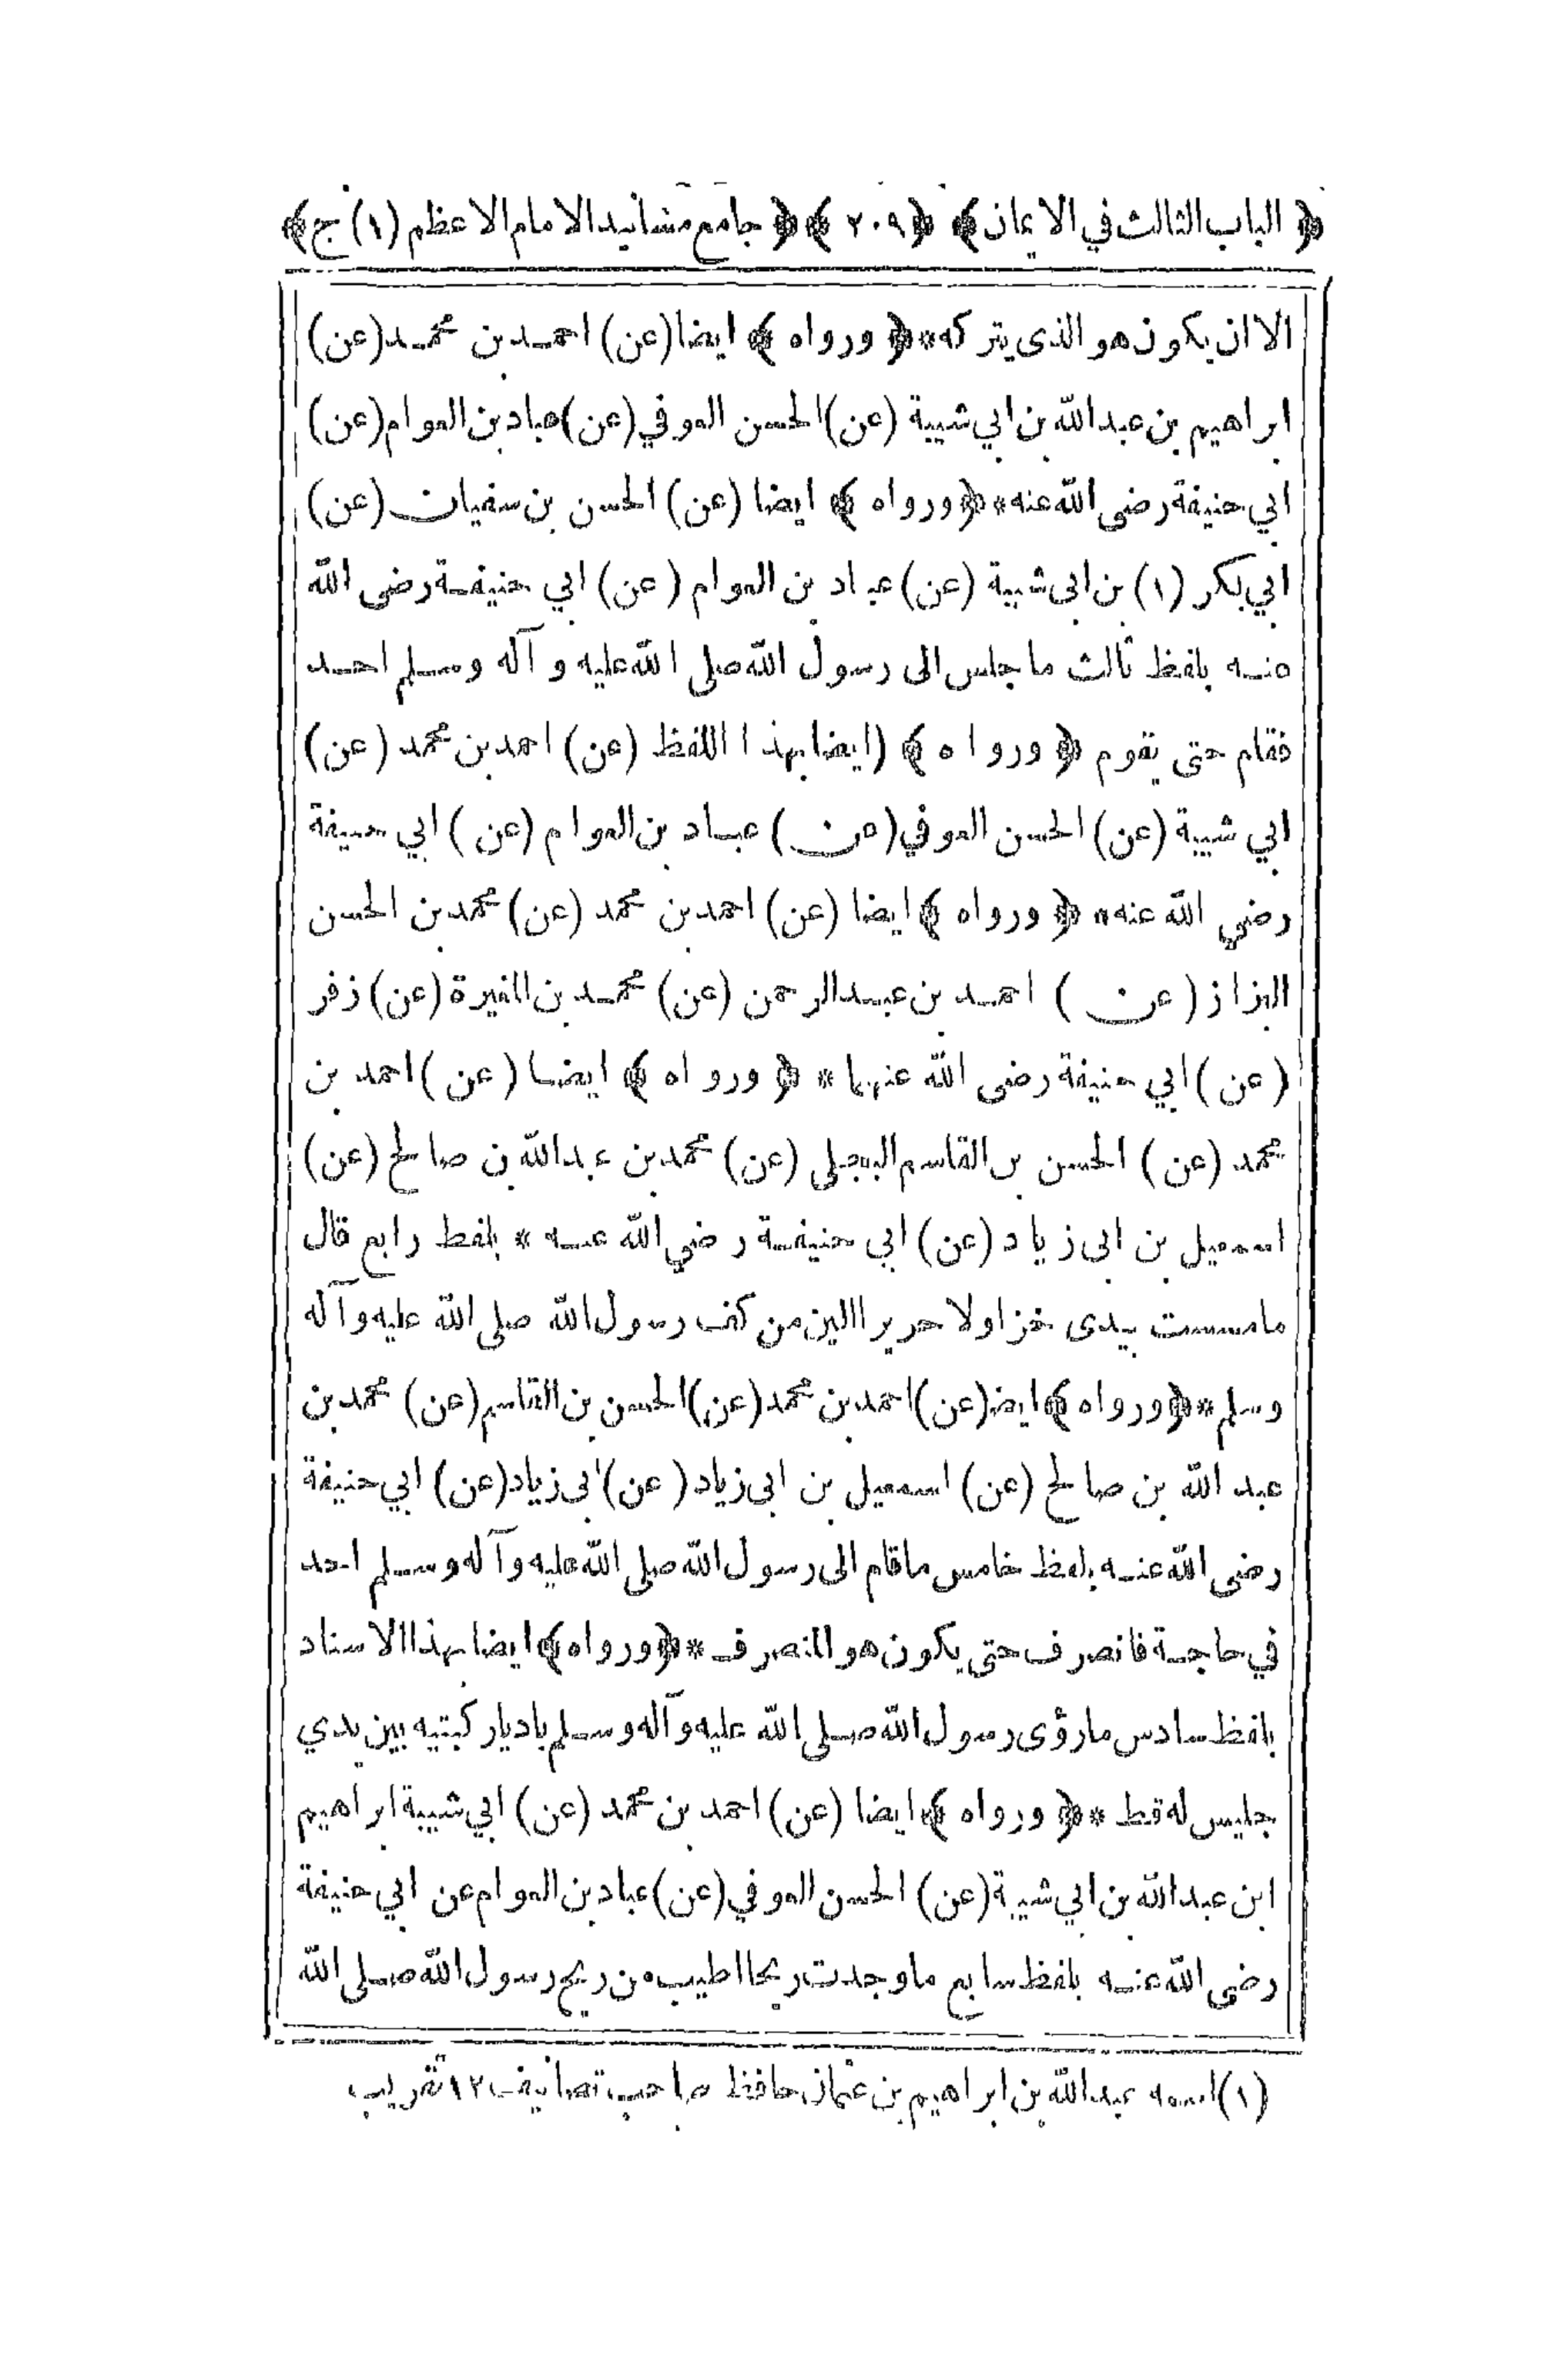 ﴿ الباب الثالث في الايمان ﴾ ﴿ ٢٠٩ ﴾ ﴿ جامع مسانيد الامام الاعظم (١) ج ﴾
الا ان يكون هو الذى يتركه * ﴿ ورواه ﴾ ايضا (عن) احمد بن محمد (عن)
ابراهيم بن عبد الله بن ابي شيبة (عن) الحسن العوفي (عن) عباد بن العوام (عن)
ابي حنيفة رضى الله عنه * ﴿ ورواه ﴾ ايضا (عن) الحسن بن سفيان (عن)
ابي بكر (١) بن ابى شيبة (عن) عباد بن العوام (عن) ابي حنيفة رضى الله
عنه بلفظ ثالث ما جلس الى رسول الله صلى الله عليه و آله وسلم احد
فقام حتى يقوم ﴿ ورواه ﴾ (ايضا بهذا اللفظ (عن) احمد بن محمد (عن)
ابي شيبة (عن) الحسن العوفي (عن) عباد بن العوام (عن) ابي حنيفة
رضي الله عنه * ﴿ ورواه ﴾ ايضا (عن) احمد بن محمد (عن) محمد بن الحسن
البزاز (عن) احمد بن عبد الرحمن (عن) محمد بن المغيرة (عن) زفر
(عن) ابي حنيفة رضى الله عنهما * ﴿ ورواه ﴾ ايضا (عن) احمد بن
محمد (عن) الحسن بن القاسم البجلى (عن) محمد بن عبد الله بن صالح (عن)
اسمعيل بن ابى زياد (عن) ابي حنيفة رضي الله عنه * بلفظ رابع قال
ما مسست بيدى خزا ولا حريرا الين من كف رسول الله صلى الله عليه وآله
وسلم * ﴿ ورواه ﴾ ايضا (عن) احمد بن محمد (عن) الحسن بن القاسم (عن) محمد بن
عبد الله بن صالح (عن) اسمعيل بن ابى زياد (عن) ابى زياد (عن) ابي حنيفة
رضى الله عنه بلفظ خامس ما قام الى رسول الله صلى الله عليه وآله وسلم احد
في حاجة فانصرف حتى يكون هو المنصرف * ﴿ ورواه ﴾ ايضا بهذا الاسناد
بلفظ سادس ما رؤى رسول الله صلى الله عليه وآله وسلم باديا ركبتيه بين يدي
جليس له قط * ﴿ ورواه ﴾ ايضا (عن) احمد بن محمد (عن) ابي شيبة ابراهيم
ابن عبد الله بن ابي شيبة (عن) الحسن العوفي (عن) عباد بن العوام عن ابي حنيفة
رضى الله عنه بلفظ سابع ما وجدت ريحا اطيب من ريح رسول الله صلى الله
(١) اسمه عبد الله بن ابراهيم بن عثمان حافظ صاحب تصانيف ١٢ تقريب